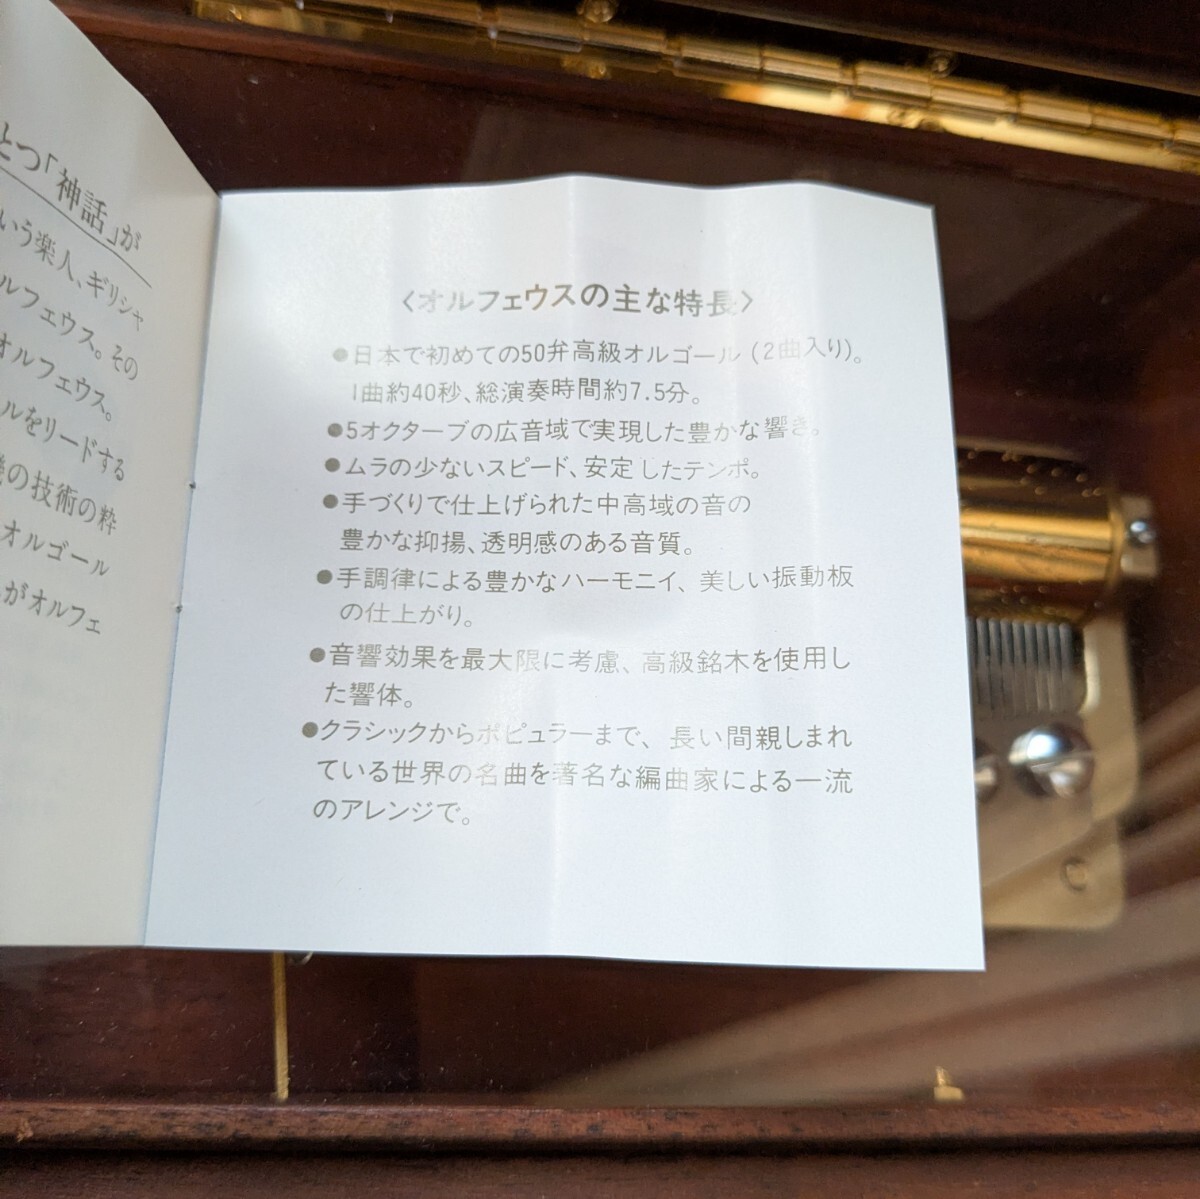 とつ「神話」が
いう楽人、ギリシャ
ルフェウス。その
オルフェウス。
ルをリードする
の技術の粋
オルゴール
がオルフェ
〈オルフェウスの主な特長〉
●日本で初めての50弁高級オルゴール(2曲入り)。
1曲約40秒、総演奏時間約7.5分。
●5オクターブの広音域で実現した豊かな響き。
●ムラの少ないスピード、安定したテンポ。
●手づくりで仕上げられた中高域の音の
豊かな抑揚、透明感のある音質。
●手調律による豊かなハーモニイ、美しい振動板
の仕上がり。
●音響効果を最大限に考慮、高級銘木を使用し
た響体。
●クラシックからポピュラーまで、長い間親しまれ
ている世界の名曲を著名な編曲家による一流
のアレンジで。